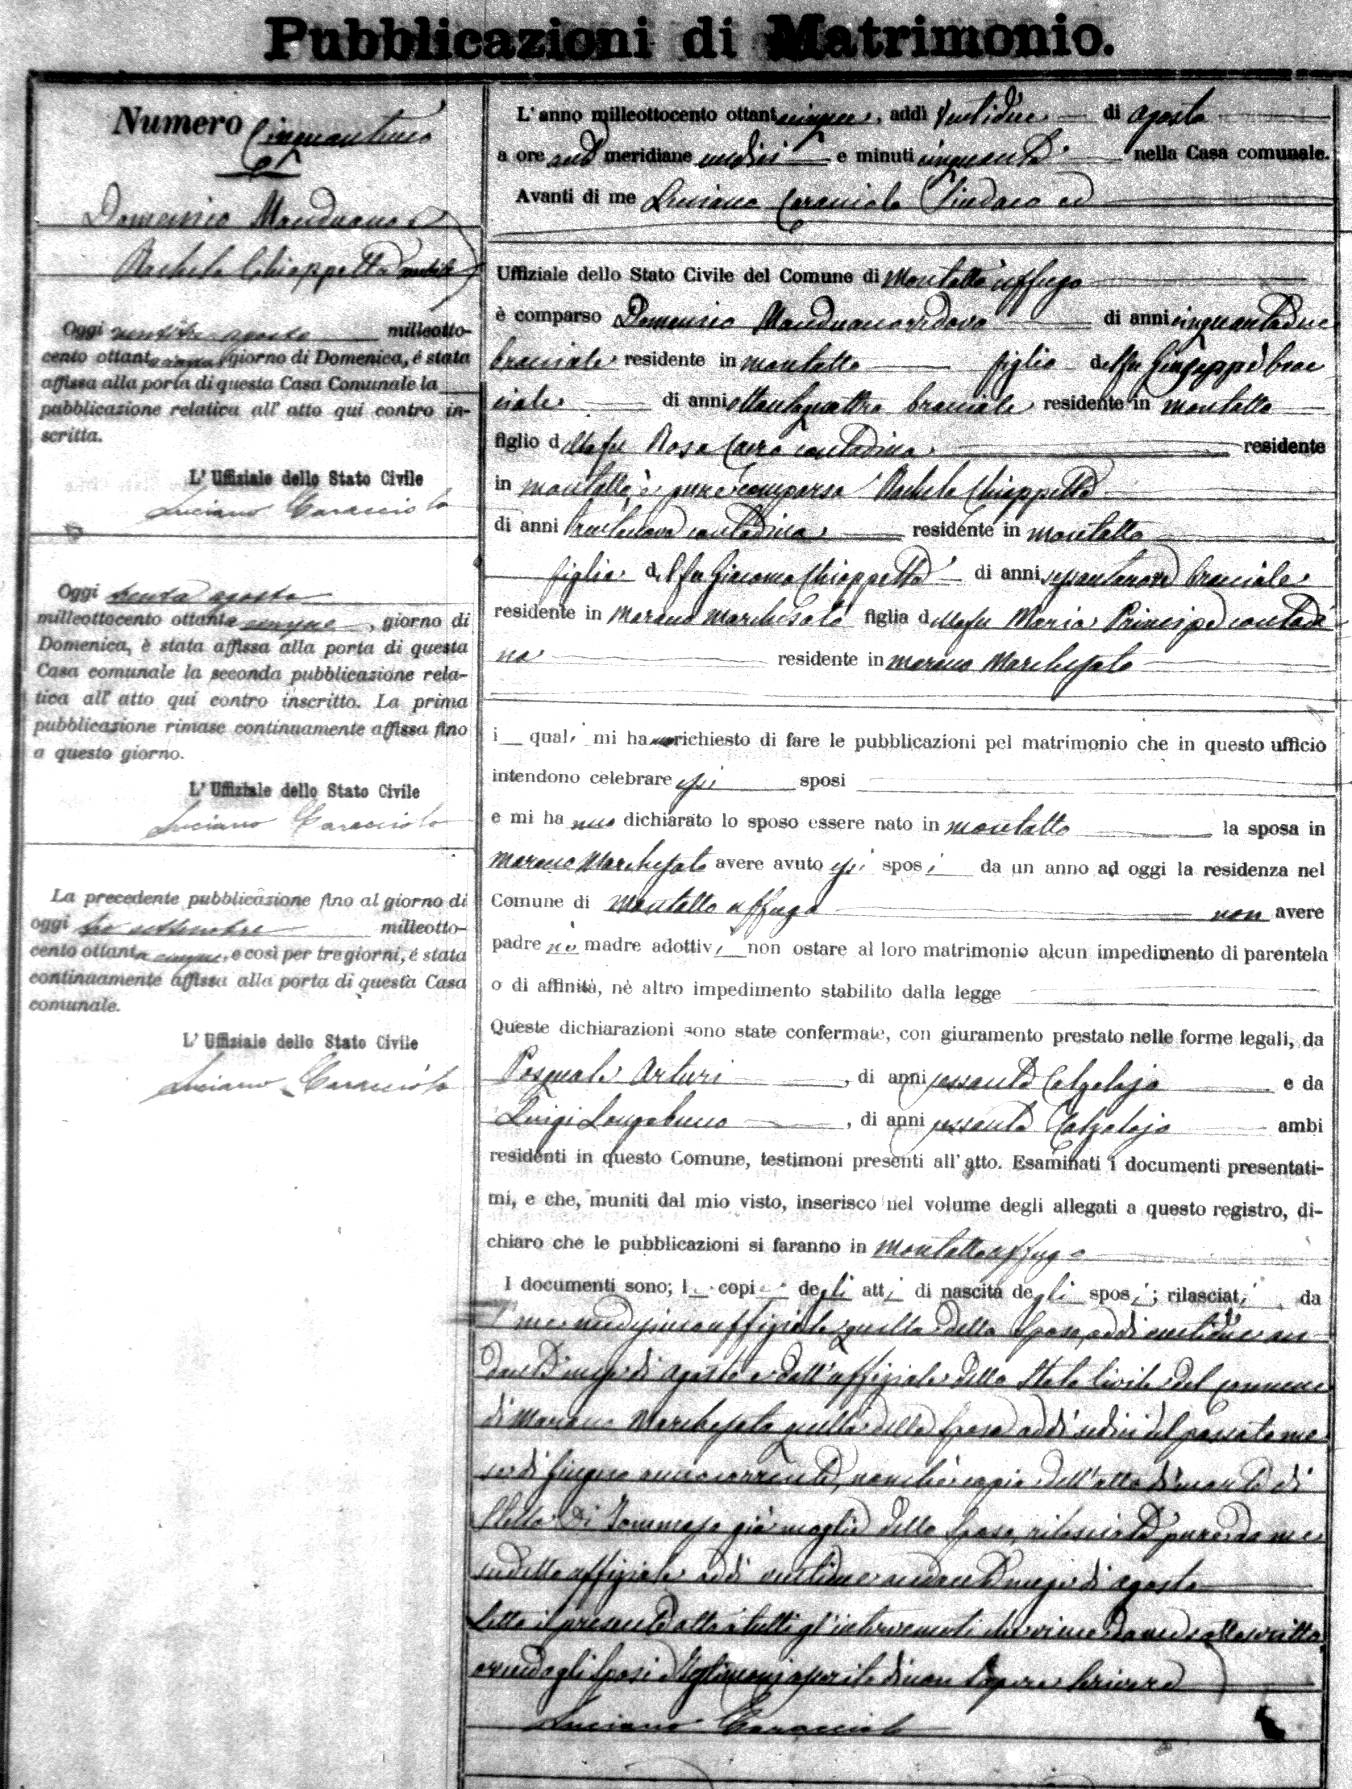 Pubblicazioni di Matrimonio.
Numero Cinquantuno
Domenico Manduano e
Rachele Chiappetta nubile
Oggi ventitre agosto milleotto-
cento ottantacinque giorno di Domenica, é stata
affissa alla porta di questa Casa Comunale la
pubblicazione relativa all' atto qui contro in-
scritta.
L' Uffiziale dello Stato Civile
Luciano Caracciolo
Oggi trenta agosto
milleottocento ottantacinque, giorno di
Domenica, è stata affissa alla porta di questa
Casa comunale la seconda pubblicazione rela-
tica all' atto qui contro inscritto. La prima
pubblicazione rimase continuamente affissa fino
a questo giorno.
L' Uffiziale dello Stato Civile
Luciano Caracciolo
La precedente pubblicazione fino al giorno di
oggi tre settembre milleotto-
cento ottantacinque, e così per tre giorni, é stata
continuamente affissa alla porta di questa Casa
comunale.
L' Uffiziale dello Stato Civile
Luciano Caracciolo
L' anno milleottocento ottantcinque, addì Ventidue di agosto
a ore anti meridiane undici e minuti cinquanta nella Casa comunale.
Avanti di me Luciano Caracciolo Sindaco ed
Uffiziale dello Stato Civile del Comune di Montalto Uffugo
è comparso Domenico Manduano vedovo di anni cinquantadue
bracciale residente in Montalto figlio del fu Giuseppe brac
ciale di anni ottantaquattro bracciale residente in Montalto
figlio della fu Rosa contadina residente
in Montalto è pure comparsa Rachele Chiappetta
di anni trentanove contadina residente in Montalto
figlia del fu Giacomo Chiappetta di anni sessantanove bracciale
residente in Marano Marchesato figlia della fu Maria Principe contadi
na residente in Marano Marchesato
i quali mi hanno richiesto di fare le pubblicazioni pel matrimonio che in questo ufficio
intendono celebrare essi sposi
e mi hanno dichiarato lo sposo essere nato in Montalto la sposa in
Marano Marchesato avere avuto essi sposi da un anno ad oggi la residenza nel
Comune di Montalto Uffugo non avere
padre nè madre adottivi non ostare al loro matrimonio alcun impedimento di parentela
o di affinità, nè altro impedimento stabilito dalla legge
Queste dichiarazioni sono state confermate, con giuramento prestato nelle forme legali, da
Pasquale Arturi, di anni sessanta Calzolajo e da
Luigi Longobucco, di anni sessanta Calzolajo ambi
residenti in questo Comune, testimoni presenti all' atto. Esaminati i documenti presentati-
mi, e che, muniti dal mio visto, inserisco nel volume degli allegati a questo registro, di-
chiaro che le pubblicazioni si faranno in Montalto Uffugo
I documenti sono; le copie degli atti di nascita degli sposi; rilasciati da
me medesimo uffiziale quella dello Sposo, addi ventidue an
dante mese di agosto e dall'uffiziale dello Stato Civile del Comune
di Marano Marchesato quella della Sposa addi sedici del passato me
se di Giugno anno corrente, nonchè copia dell'atto di morte di
Stella Di Tommaso già moglie dello Sposo, rilasciata pure da me
sudetto uffiziale addi ventidue andante mese di agosto
Letto il presente atto a tutti gl'intervenuti, che viene da me sottoscritto
avendo gli Sposi e Testimoni asserito di non Sapere Scrivere
Luciano Caracciolo